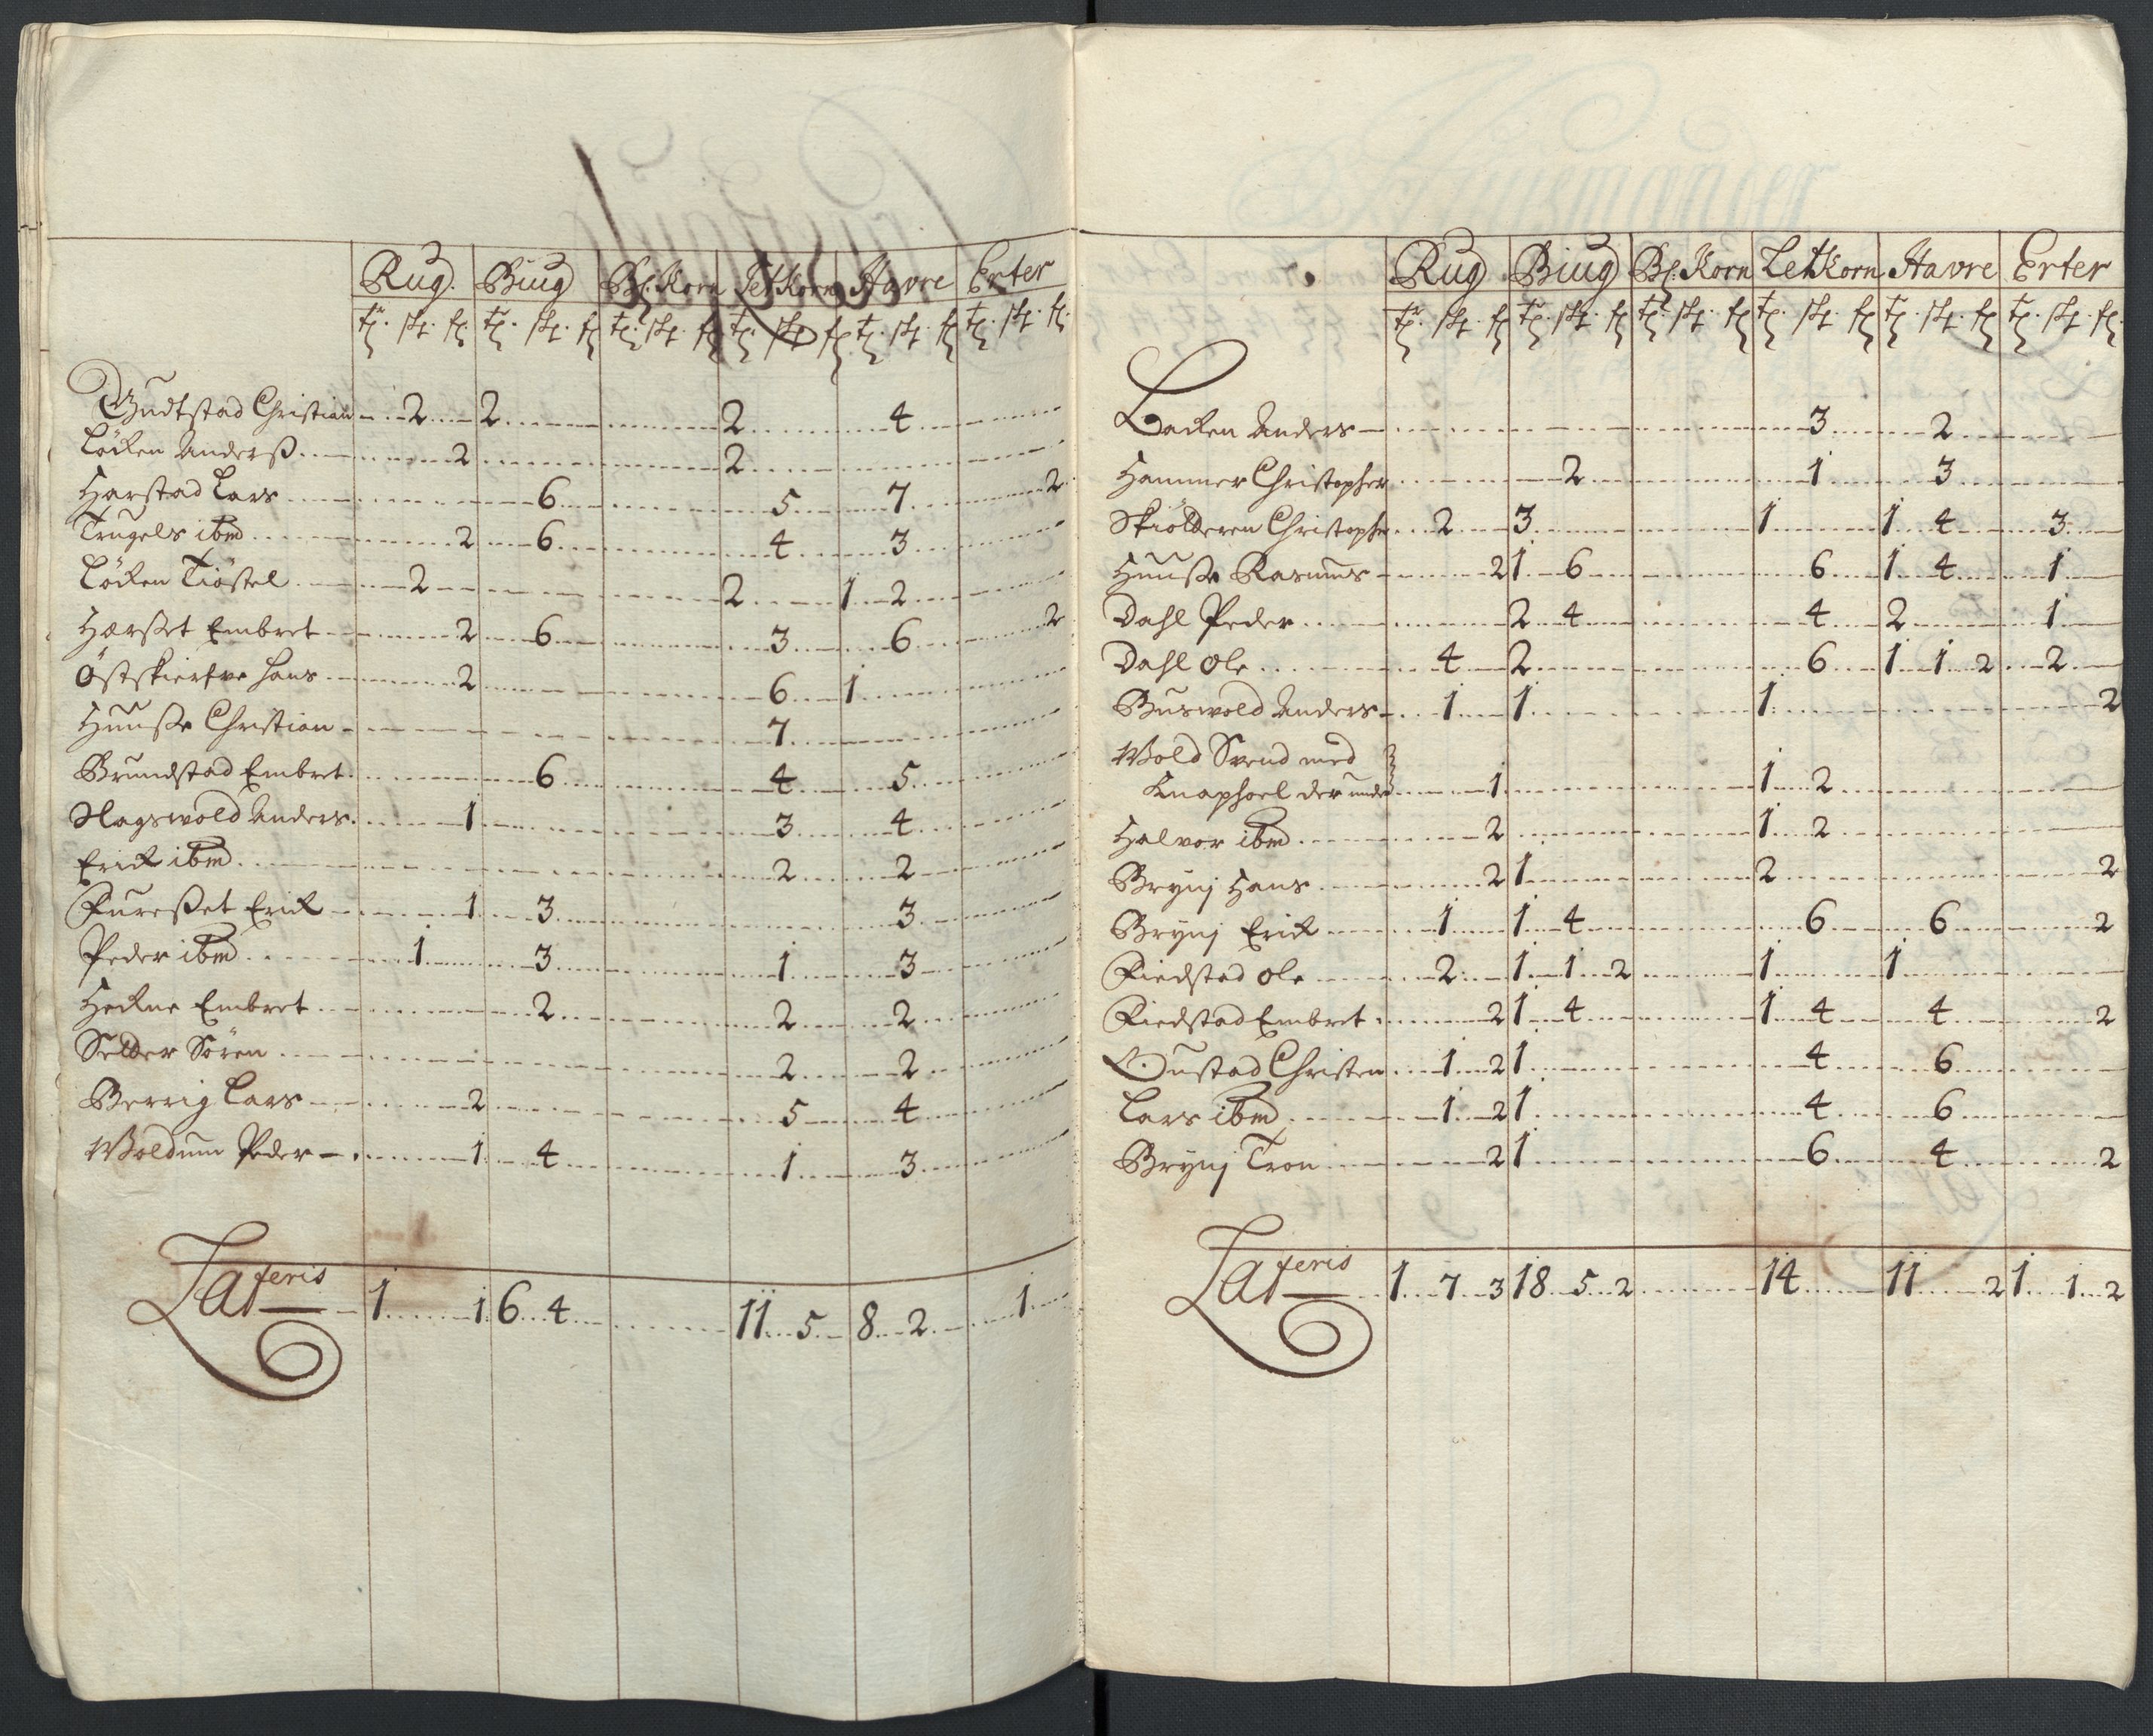 Rug. Biug Bl. Korn LetKorn Havre Erter
tr. sk. fr. tr. sk. fr. tr. sk. fr. tr. sk. fr. tr. sk. fr. tr. sk. fr.
Gudtstad Christian 2 2 2 4
Löcken Anderss 2 2
Harstad Lars 6 5 7 2
Trugels ibm 2 6 4 3
Löcken Tiöstel 2 2 1 2
Hærset Embret 2 6 3 6 2
Östskierfve Hans 2 6 1
Huuse Christian 7
Brundstad Embret 6 4 5
Hagswold Anders 1 3 4
Erick ibm 2 2
Furesset Erick 1 3 3
Peder ibm 1 3 1 3
Heckne Embret 2 2 2
Selder Sören 2 2
Berrig Lars 2 5 4
Woldum Peder 1 4 1 3
Lateris 1 1 6 4 11 5 8 2 1
Rug Biug Bl. Korn LetKorn Havre Erter
tr. sk. fr. tr. sk. fr. tr. sk. fr. tr. sk. fr. tr. sk. fr. tr. sk. fr.
Backen Anders 3 2
Hammer Christopher 2 1 3
Skiölderen Christopher 2 3 1 1 4 3
Huuse Rasmus 2 1 6 6 1 4 1
Dahl Peder 2 4 4 2 1
Dahl Ole 4 2 6 1 1 2 2
Buswold Anders 1 1 1 2
Wold Svend med
Knaphoel der under 1 1 2
Halvor ibm 2 1 2
Brynj Hans 2 1 2 2
Brynj Erick 1 1 4 6 6 2
Fiedstad Ole 2 1 1 2 1 1
Fiedstad Embret 2 1 4 1 4 4 2
Oustad Christen 1 2 1 4 6
Lars ibm 1 2 1 4 6
Brynj Tron 2 1 6 4 2
Lateris 1 7 3 18 5 2 14 11 2 1 1 2